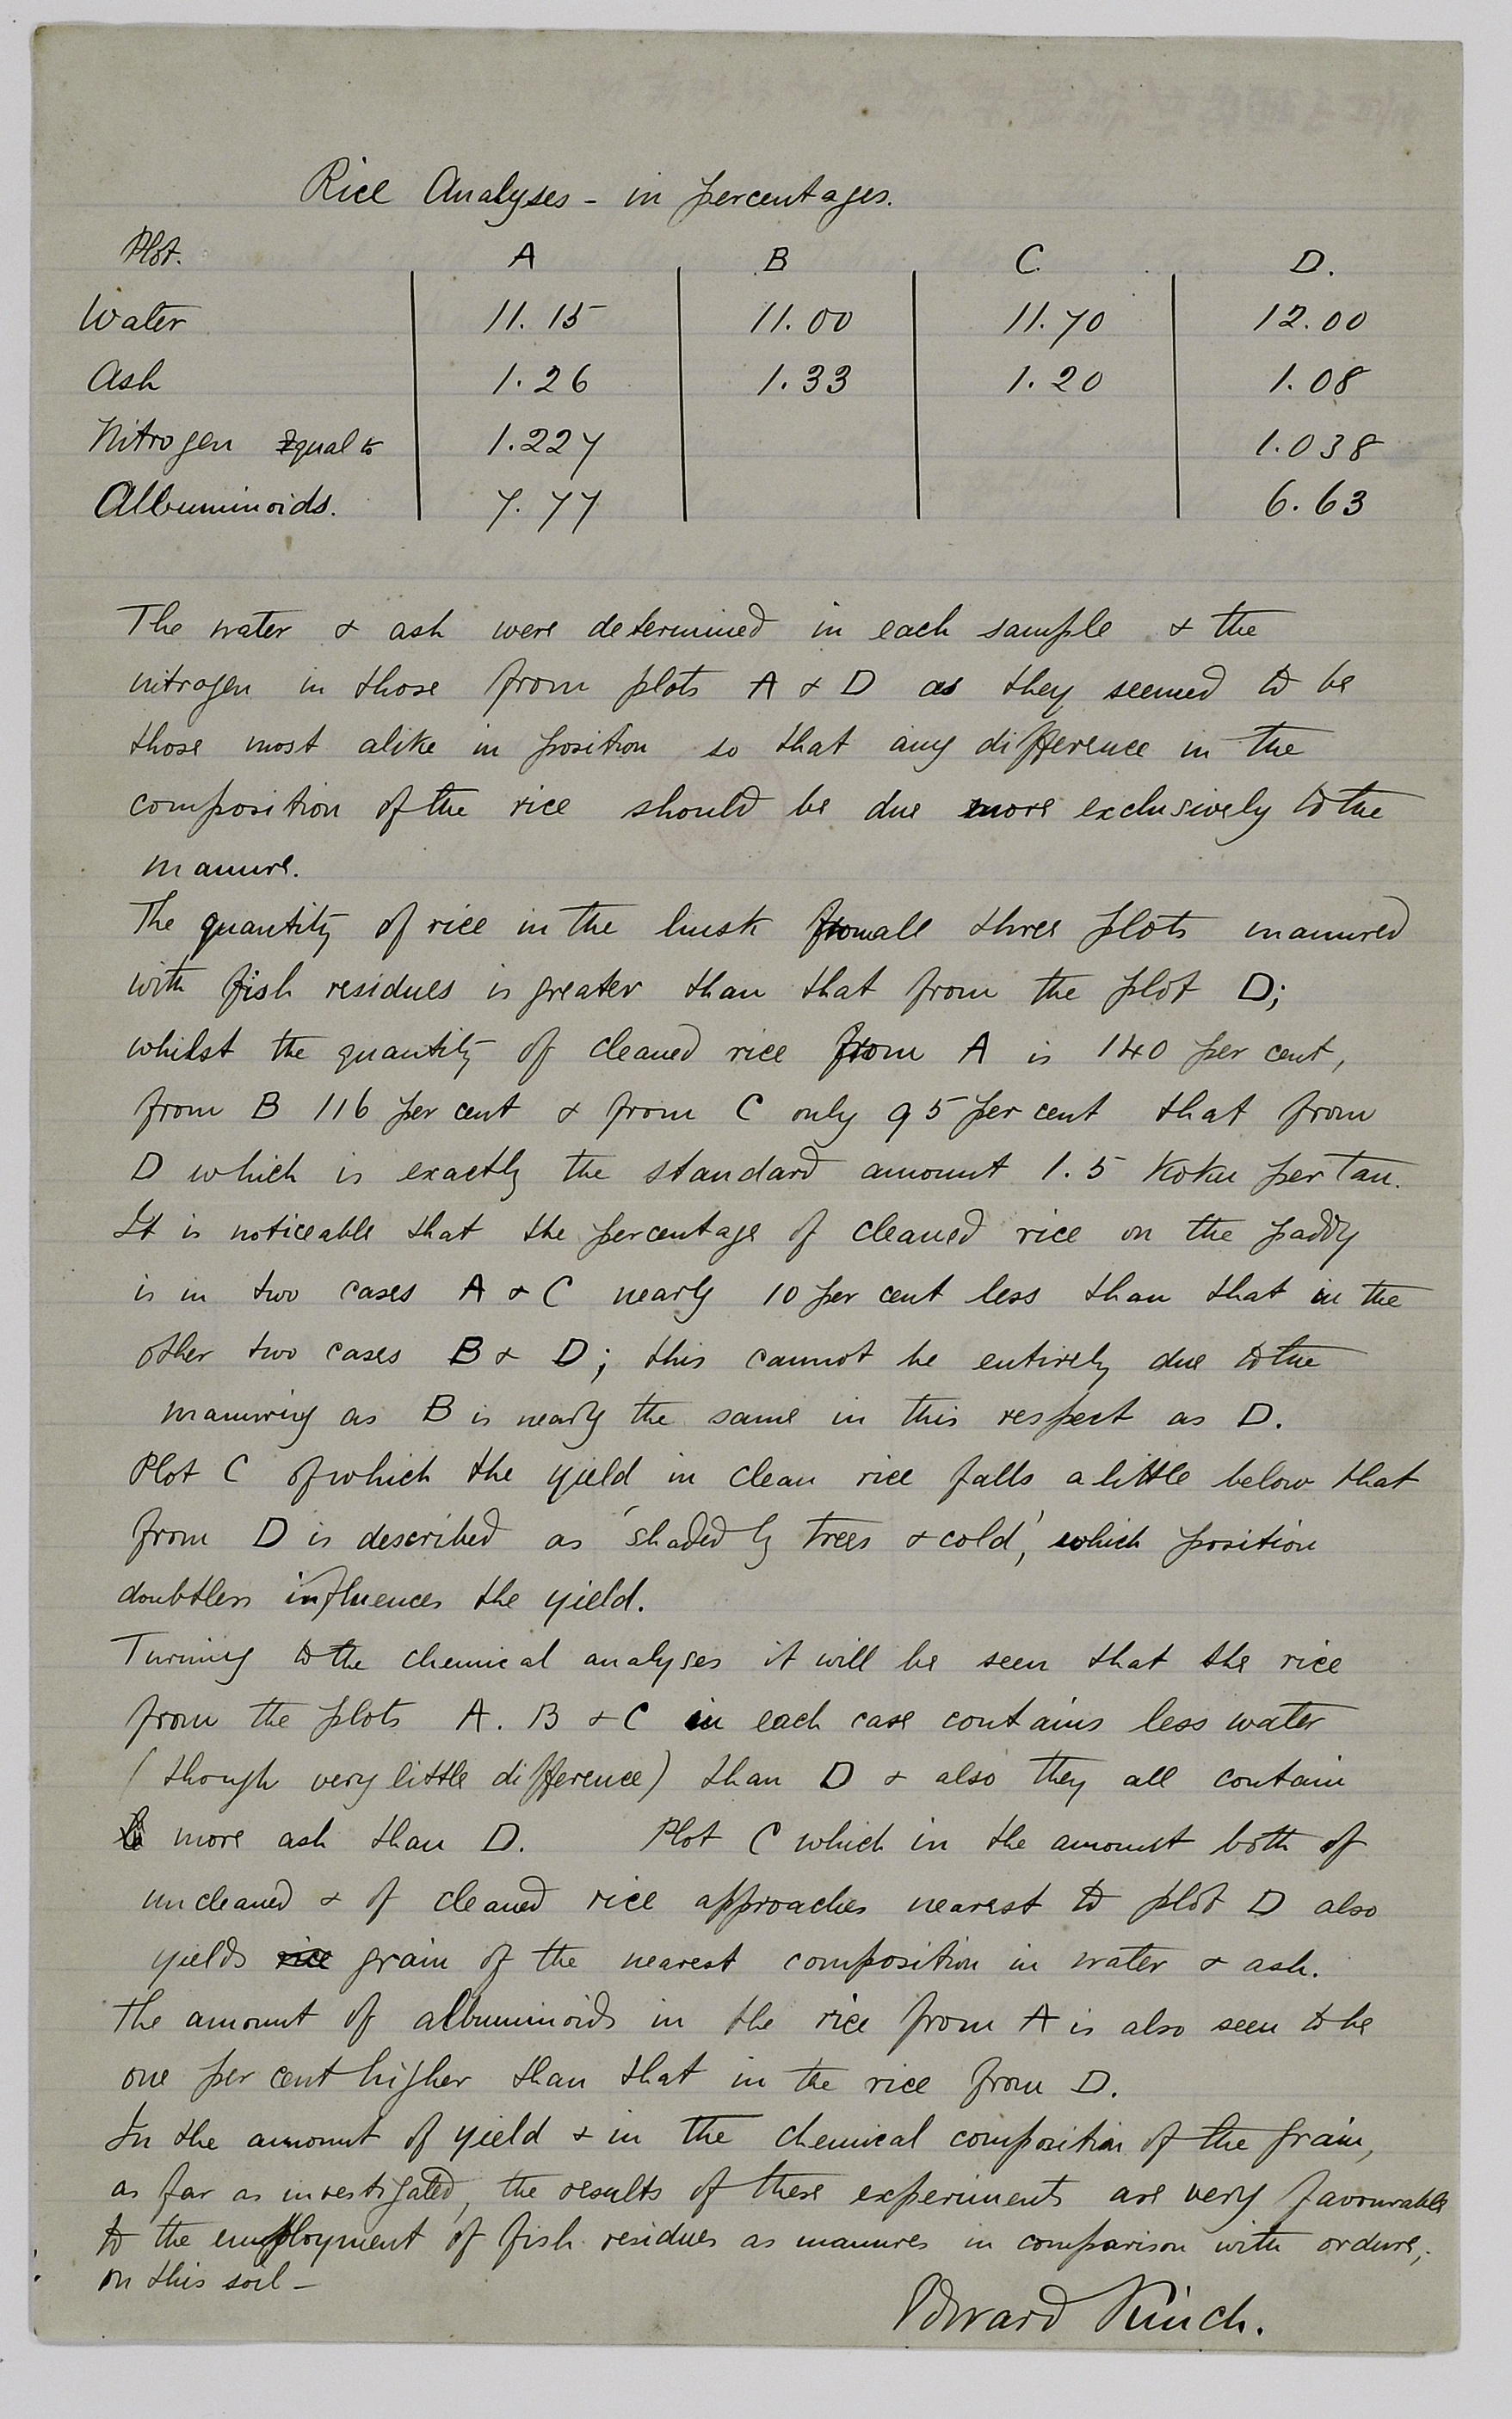 Rice Analyses - in percentages.
Plot. A B C. D.
Water 11.15 11.00 11.70 12.00
Ash 1.26 1.33 1.20 1.08
Nitrogen Equal to 1.227 1.038
Albuminoids. 7.77 6.63
The water & ash were determined in each sample & the
nitrogen in those from plots A & D as they seemed to be
those most alike in position so that any difference in the
composition of the rice should be due more exclusively to the
manure.
The quantity of rice in the husk from all three plots manured
with fish residues is greater than that from the plot D;
whilst the quantity of cleaned rice from A is 140 per cent,
from B 116 per cent & from C only 95 per cent that from
D which is exactly the standard amount 1.5 Koku per Tan.
It is noticeable that the percentage of cleaned rice on the paddy
is in two cases A & C nearly 10 per cent less than that in the
other two cases B & D; this cannot be entirely due to the
manuring as B is nearly the same in this respect as D.
Plot C of which the yield in clean rice falls a little below that
from D is described as 'shaded by trees & cold,' which position
doubtless influences the yield.
Turning to the chemical analyses it will be seen that the rice
from the plots A. B & C in each case contains less water
(though very little difference) than D & also they all contain
more ash than D. Plot C which in the amount both of
uncleaned & of cleaned rice approaches nearest to plot D also
yields rice grain of the nearest composition in water & ash.
The amount of albuminoids in the rice from A is also seen to be
one per cent higher than that in the rice from D.
In the amount of yield & in the chemical composition of the grain,
as far as investigated, the results of these experiments are very favourable
to the employment of fish residues as manures in comparison with ordure,
on this soil -
Edward Kinch.